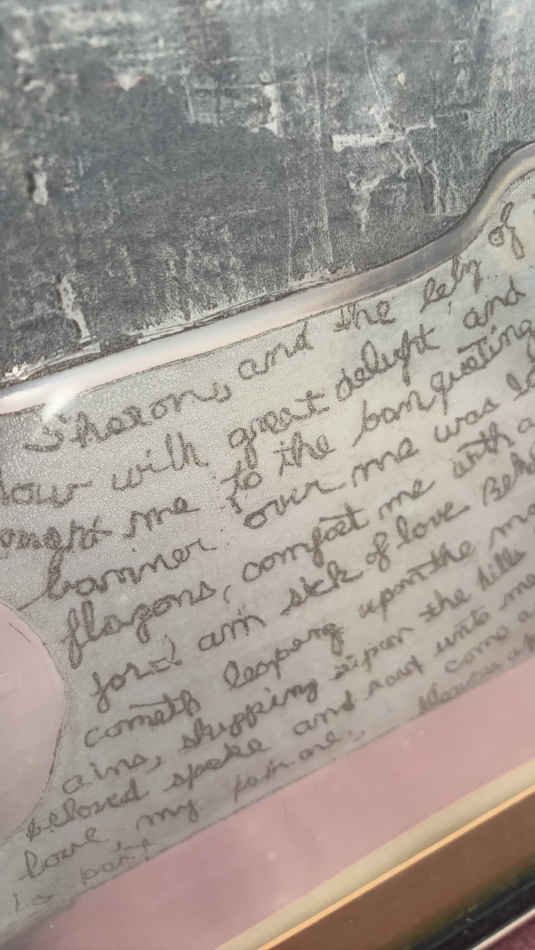 Sharon, and the lily of
dow with great delight and
me to the banqueting
banner over me was
flagons, comfort me with a
for I am sick of love
cometh leaping upon the
ains, skipping upon the hills
beloved spoke and said unto me
love, my fair one, come